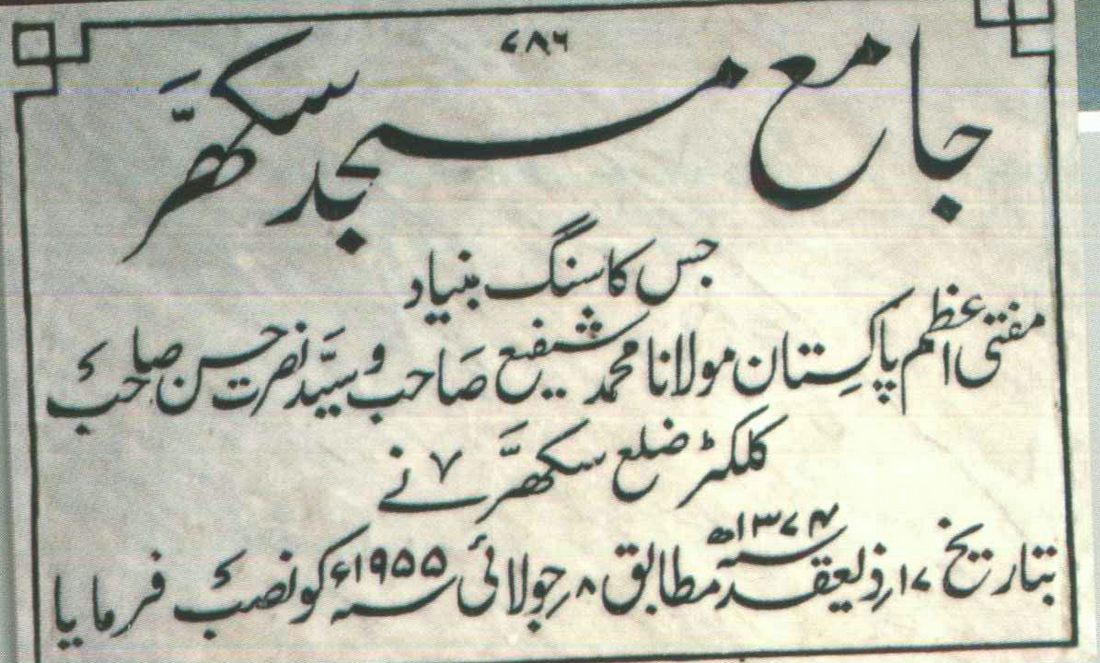 ۷۸۶
جامع مسجد سکھر
جس کا سنگ بنیاد
مفتی اعظم پاکستان مولانا محمد شفیع صاحب و سید نصرت حسن صاحب
کلکٹر ضلع سکھر نے
بتاریخ ۱۷؍ذلیعقد سنہ ۱۳۷۴ھ مطابق ۸؍جولائی سنہ ۱۹۵۵ء کو نصب فرمایا